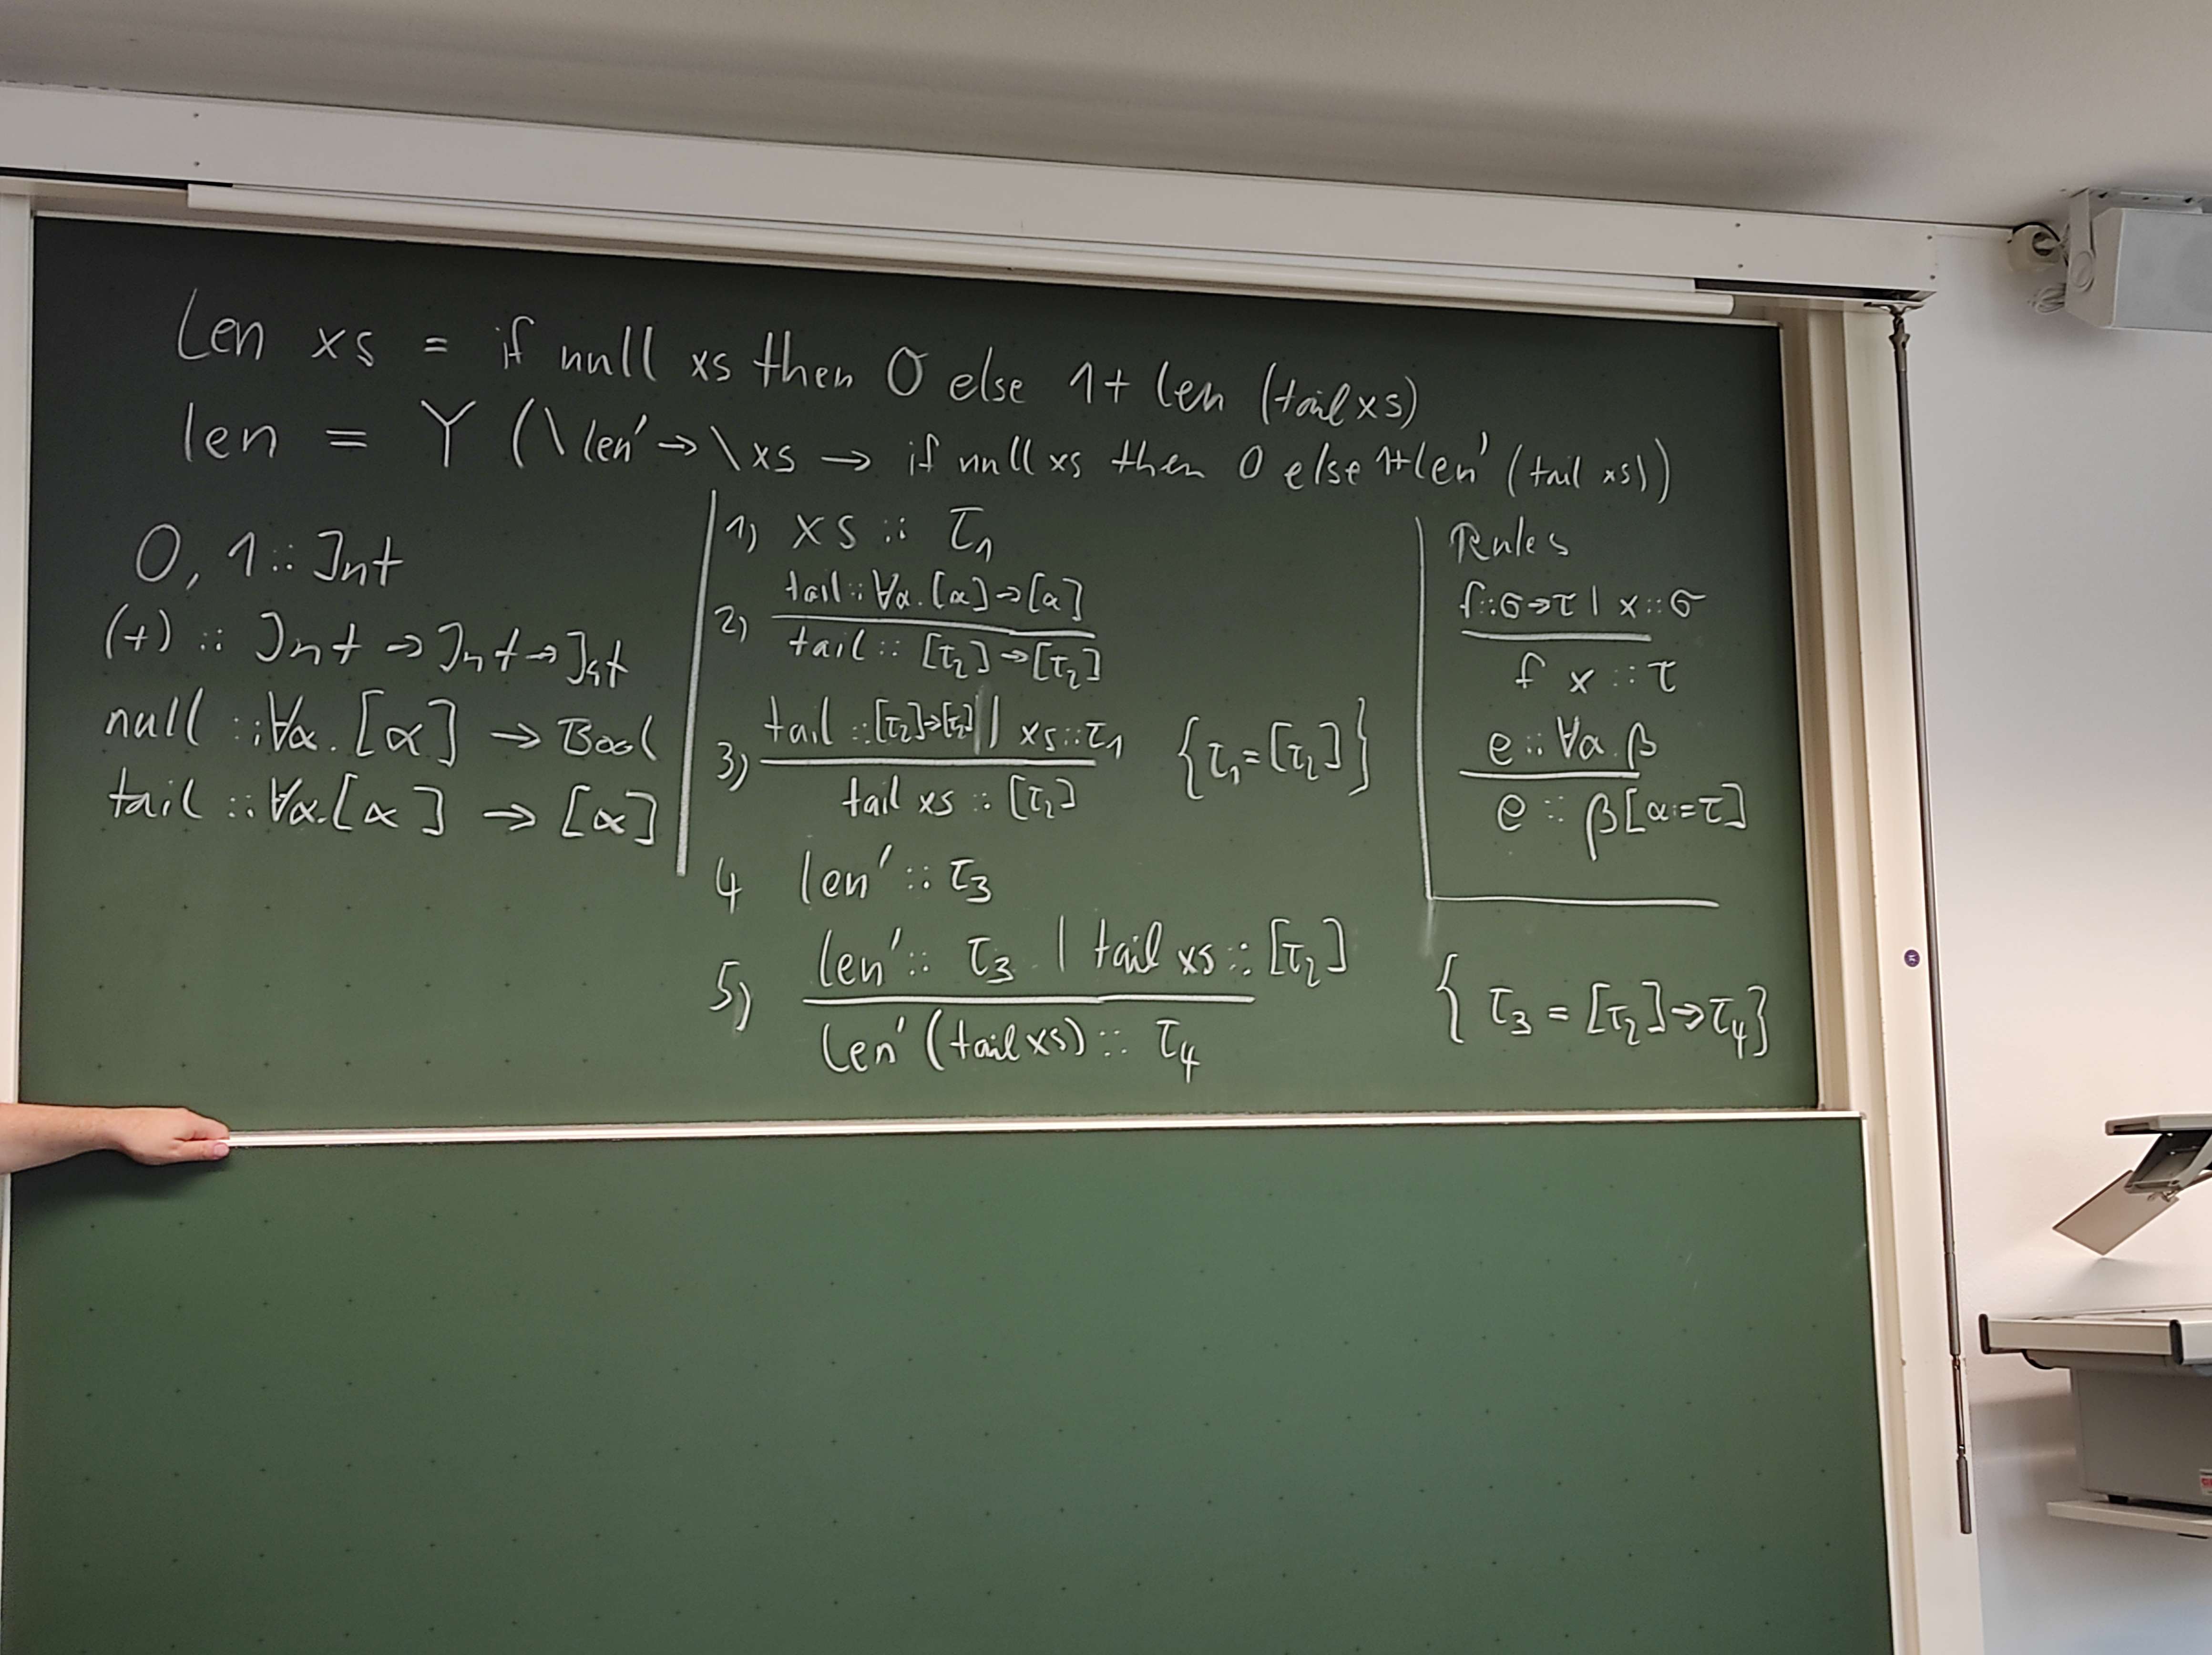 Len xs = if null xs then 0 else 1+ len (tail xs)
len = Y (\len' → \xs → if null xs then 0 else 1+len' (tail xs))
0, 1 :: Int
(+) :: Int → Int → Int
null :: ∀α. [α] → Bool
tail :: ∀α. [α] → [α]
1) xs :: τ₁
2) tail :: ∀α. [α] → [α]
tail :: [τ₂] → [τ₂]
3) tail :: [τ₂]→[τ₂] | xs :: τ₁ {τ₁ = [τ₂]}
tail xs :: [τ₂]
4 len' :: τ₃
5) len' :: τ₃ | tail xs :: [τ₂] {τ₃ = [τ₂] → τ₄}
len' (tail xs) :: τ₄
Rules
f :: σ → τ | x :: σ
f x :: τ
e :: ∀α. β
e :: β[α := τ]